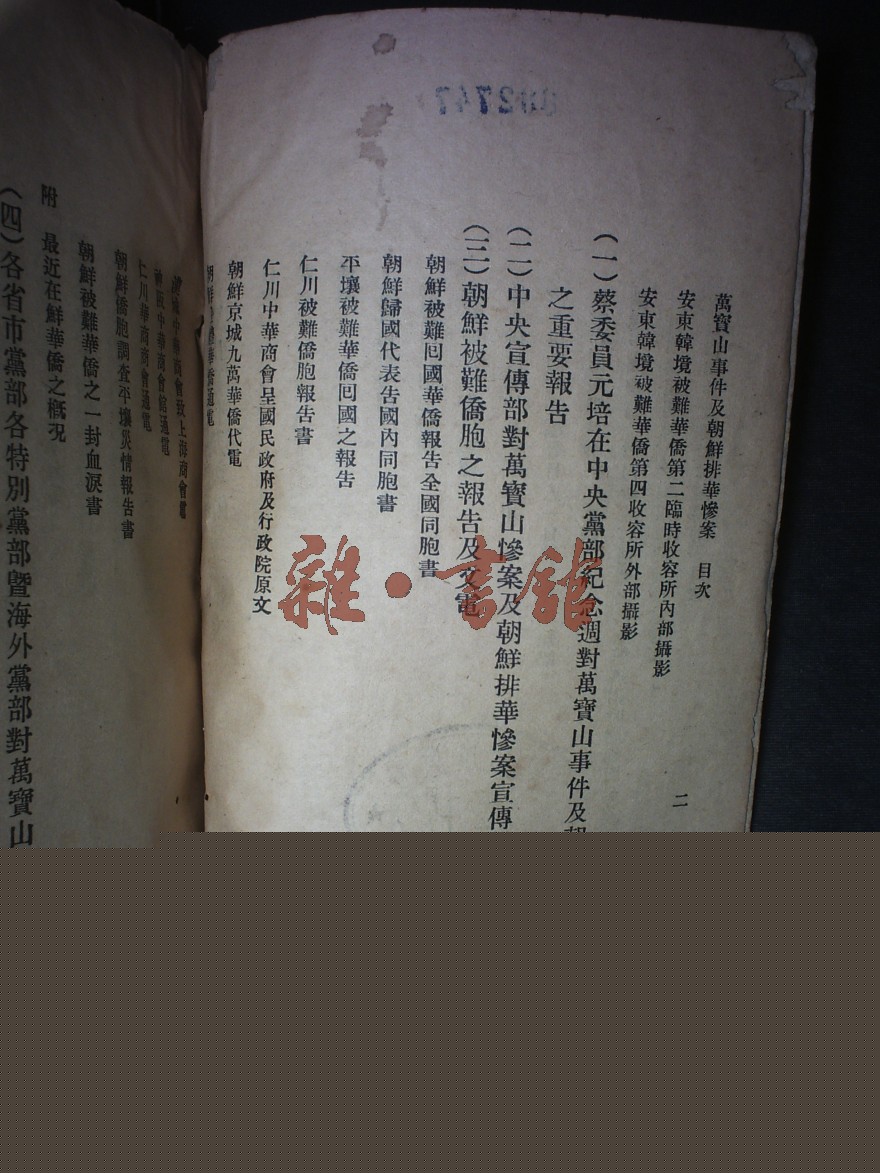 萬寶山事件及朝鮮排華慘案 目次
二
安東韓境被難華僑第二臨時收容所內部攝影
安東韓境被難華僑第四收容所外部攝影
(一)蔡委員元培在中央黨部紀念週對萬寶山事件及
之重要報告
(二)中央宣傳部對萬寶山慘案及朝鮮排華慘案宣傳
(三)朝鮮被難僑胞之報告及文電
朝鮮被難囘國華僑報告全國同胞書
朝鮮歸國代表告國內同胞書
平壤被難華僑囘國之報告
仁川被難僑胞報告書
仁川中華商會呈國民政府及行政院原文
朝鮮京城九萬華僑代電
華僑通電
中華商會致上海商會電
中華商會館通電
仁川華商商會通電
朝鮮僑胞調查平壤災情報告書
朝鮮被難華僑之一封血淚書
附 最近在鮮華僑之概況
(四)各省市黨部各特別黨部暨海外黨部對萬寶山
雜·書館
2747